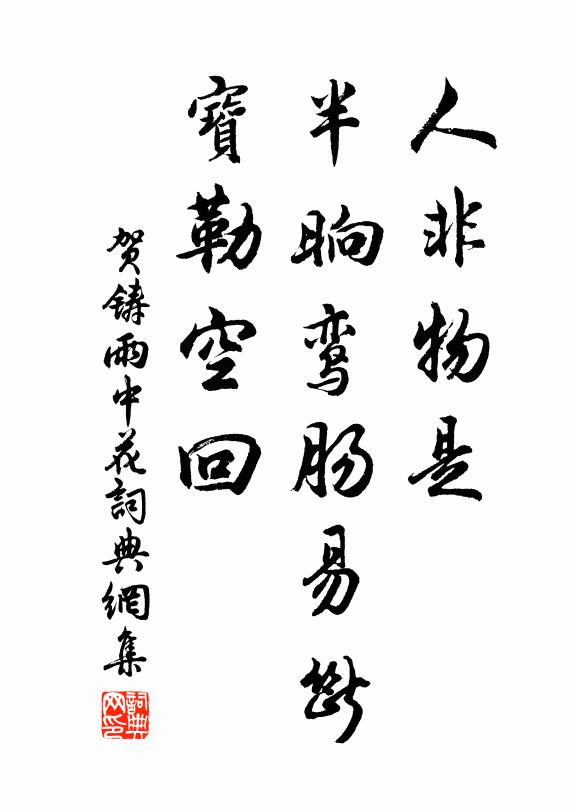 人非物是
半晌鸾肠易斷
寶勒空回
贺鑄雨中花詞典網集
詞典網印